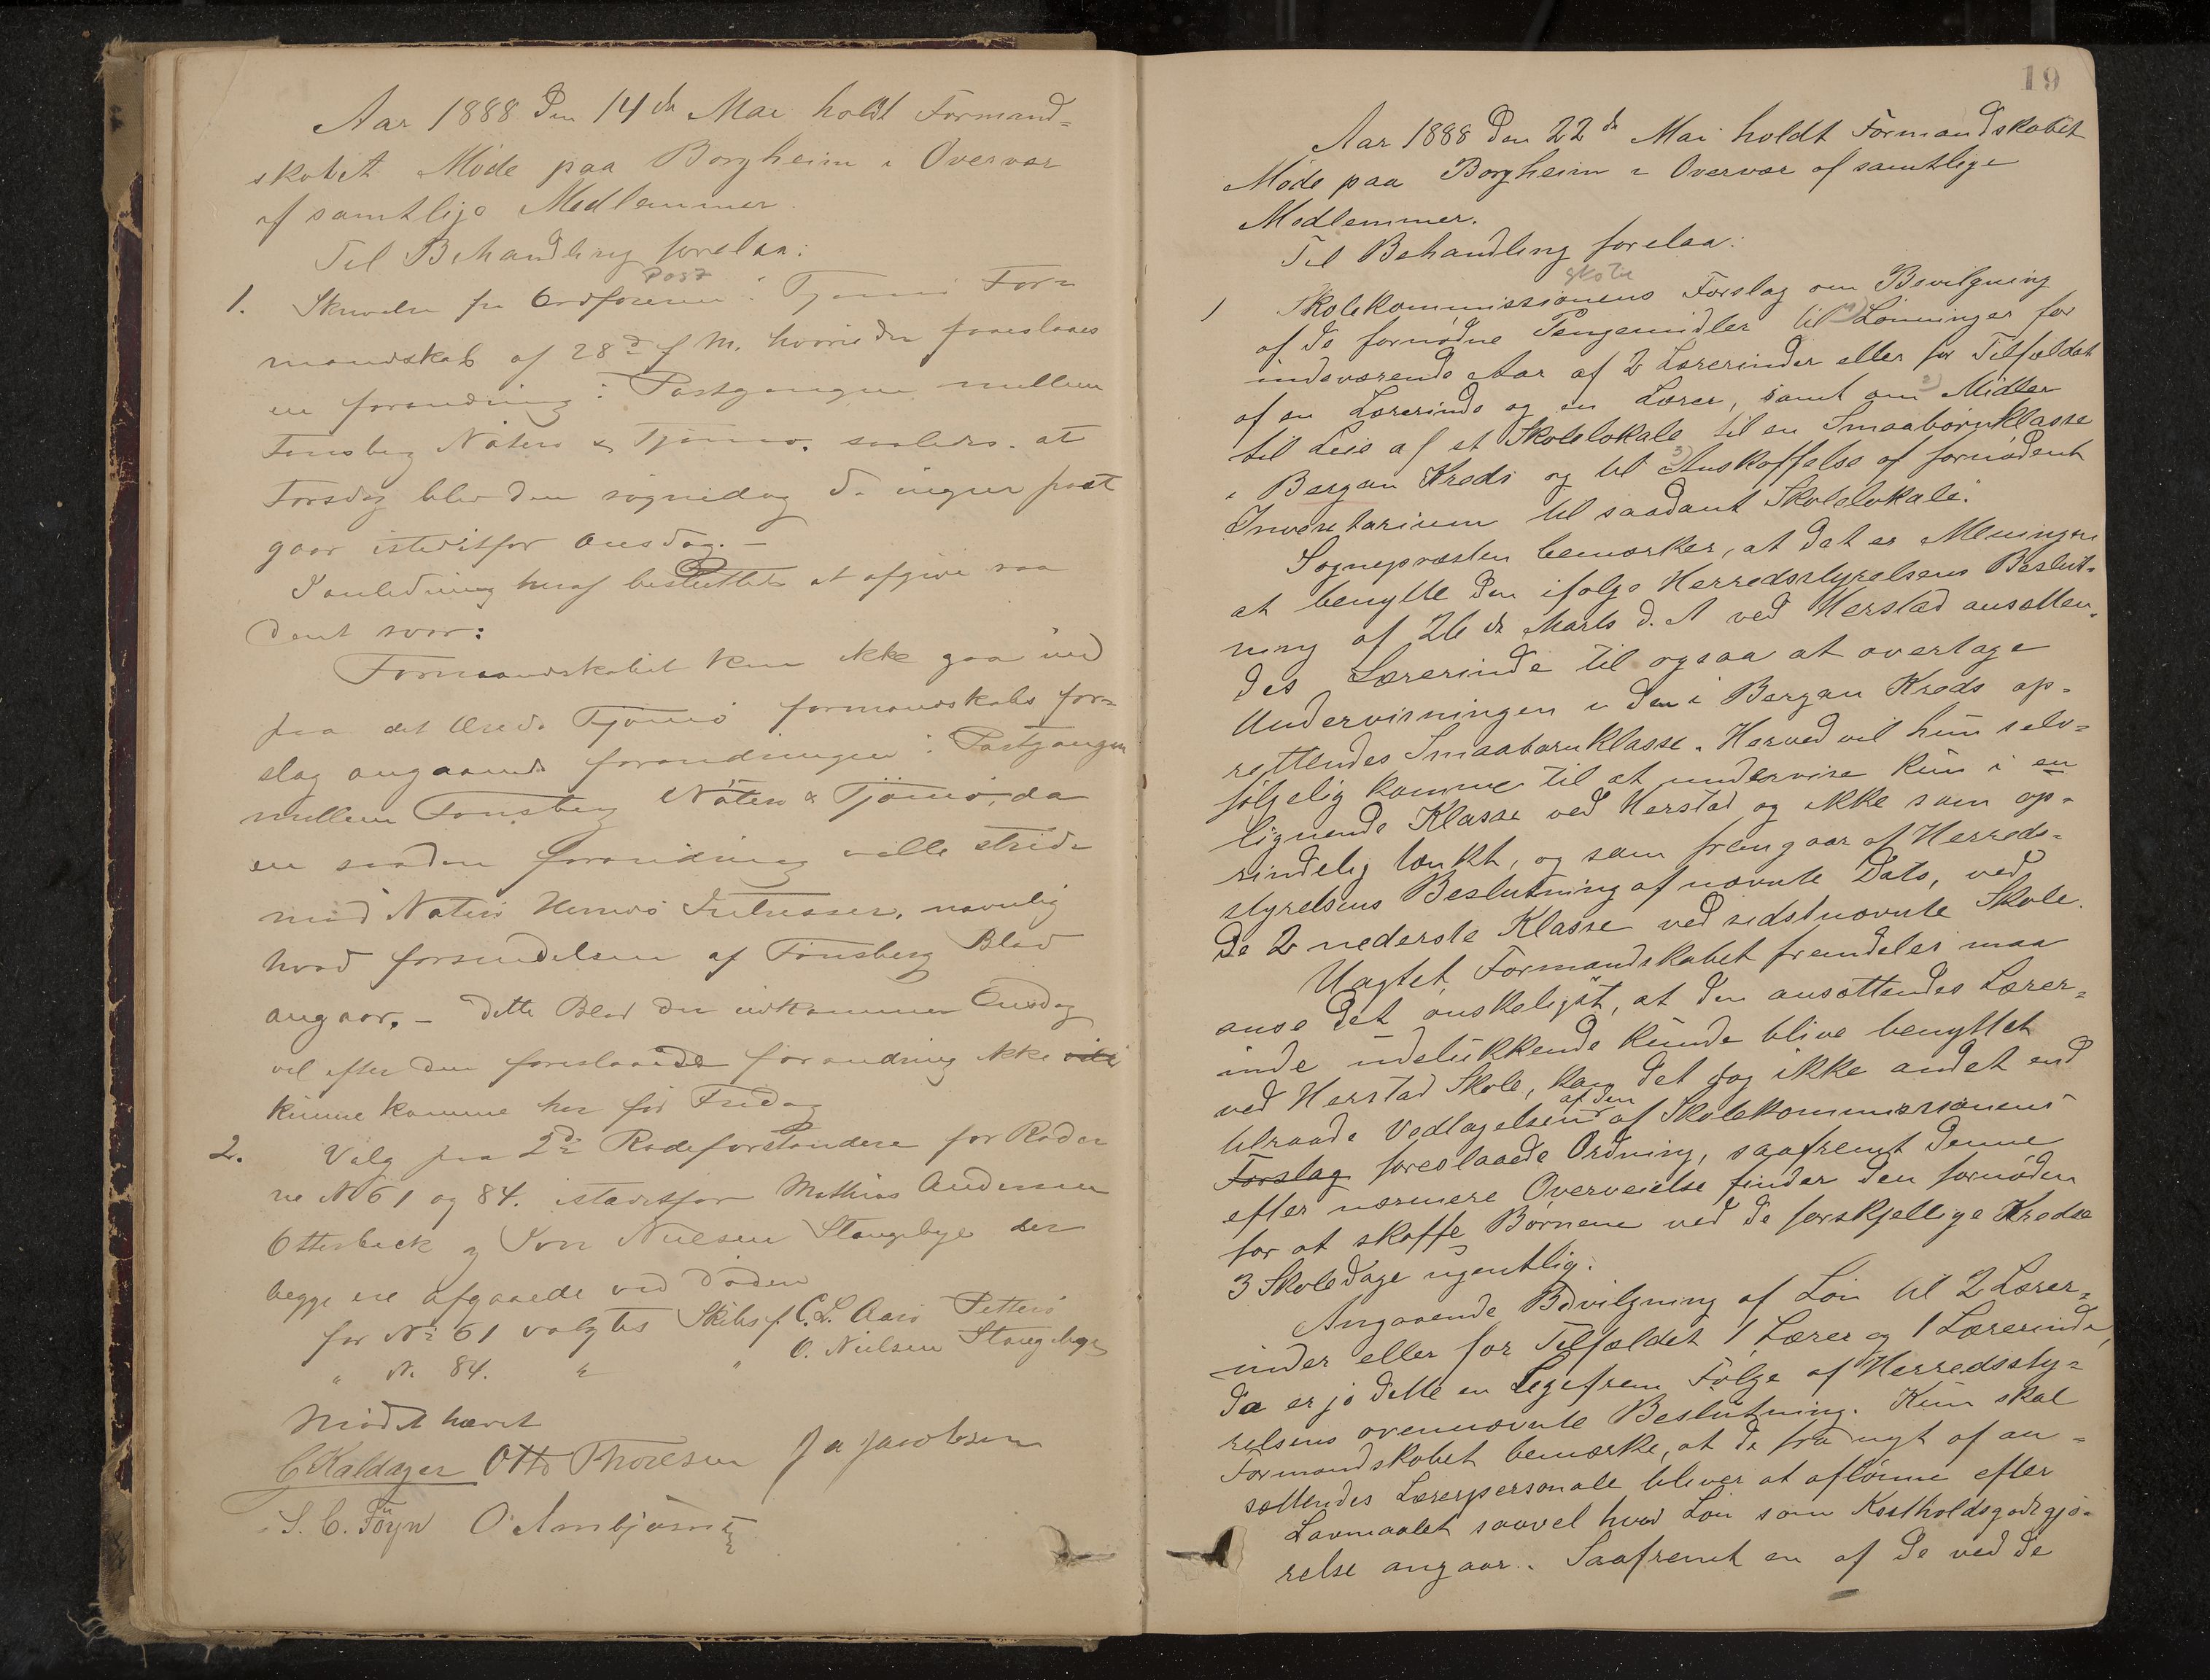 Aar 1888 den 14de Mai holdt Formand=
skabet Møde paa Borgheim i Overvær
af samtlige Medlemmer.
Til Behandling forelaa:
Post
1. Skrivelse fra Ordføreren i Tjømø For=
mandskab af 28de f. M. hvori der foreslaaes
en forandring i Postgangen mellem
Tønsberg Nøterø & Tjømø. saaledes. at
Torsdag blev den søgnedag da ingen post
gaar istedetfor Onsdag. —
I anledning heraf besluttedes at afgive saa
dant svar:
Formandskabet kan ikke gaa ind
paa det ærede Tjømø formandskabs for=
slag angaaende forandringen i Postgangen
mellem Tønsberg Nøterø & Tjømø, da
en saadan forandring ville stride
mod Nøterø Herreds Interesser, navnlig
hvad forsendelsen af Tønsberg Blad
angaar. — dette Blad der udkommer Onsdag
vil efter den foreslaaede forandring ikke
kunne komme her før Fredag
2. Valg paa 2de Rodeforstandere for Roder
ne No 61 og 84. istedetfor Mathias Andersen
Otterbeck og Iver Nielsen Stangebye der
begge ere afgaaede ved Døden
for No 61 valgtes Skibsf. C. L. Aarø Petterø
" No. 84. " " O. Nielsen Stangebye
Mødet hævet
C Kaldager Otto Thoresen J A Jacobsen
S. C. Föyn O Arnbjørnsen
19
Aar 1888 den 22de Mai holdt Formandskabet
Møde paa Borgheim i Overvær af samtlige
Medlemmer.
Til Behandling forelaa:
Skole
1 Skolekommissionens Forslag om Bevilgning
af de fornødne Pengemidler til 1) Lønninger for
indeværende Aar af 2 Lærerinder eller for Tilfældet
af en Lærerinde og en Lærer, samt om 2) Midler
til Leie af et Skolelokale til en Smaabørnklasse
i Bergan Kreds og til 3) Anskaffelse af fornødent
Inventarium til saadant Skolelokale."
Sognepræsten bemærker, at det er Meningen
at benytte den ifølge Herredsstyrelsens Beslut=
ning af 26de Marts d. A ved Herstad ansætten=
des Lærerinde til ogsaa at overtage
Undervisningen i den i Bergan Kreds op=
rettendes Smaabarnklasse. Herved vil hun selv=
følgelig komme til at undervise kun i en
lignende Klasse ved Herstad og ikke som op=
rindelig tænkt, og som fremgaar af Herreds=
styrelsens Beslutning af nævnte Dato, ved
de 2 nederste Klasse ved sidstnævnte Skole.
Uagtet Formandskabet fremdeles maa
anse det ønskeligst, at den ansættendes Lærer=
inde udelukkende kunde blive benyttet
ved Herstad Skole, kan det dog ikke andet end
tilraade Vedtagelsen af den af Skolekommissionens
Forslag foreslaaede Ordning, saafremt denne
efter nærmere Overveielse finder den fornøden
for at skaffe Børnene ved de forskjellige Kredse
3 Skoledage ugentlig.
Angaaende Bevilgning af Løn til 2 Lærer=
inder eller for Tilfældet 1 Lærer og 1 Lærerinde,
da er jo dette en ligefrem Følge af Herredssty=
relsens ovennævnte Beslutning. Kun skal
Formandskabet bemærke, at de fra nyt af an=
sættendes Lærerpersonale bliver at aflønne efter
Lavmaalet saavel hvad Løn som Kostholdsgodtgjø=
relse angaar. Saafremt en af de ved de